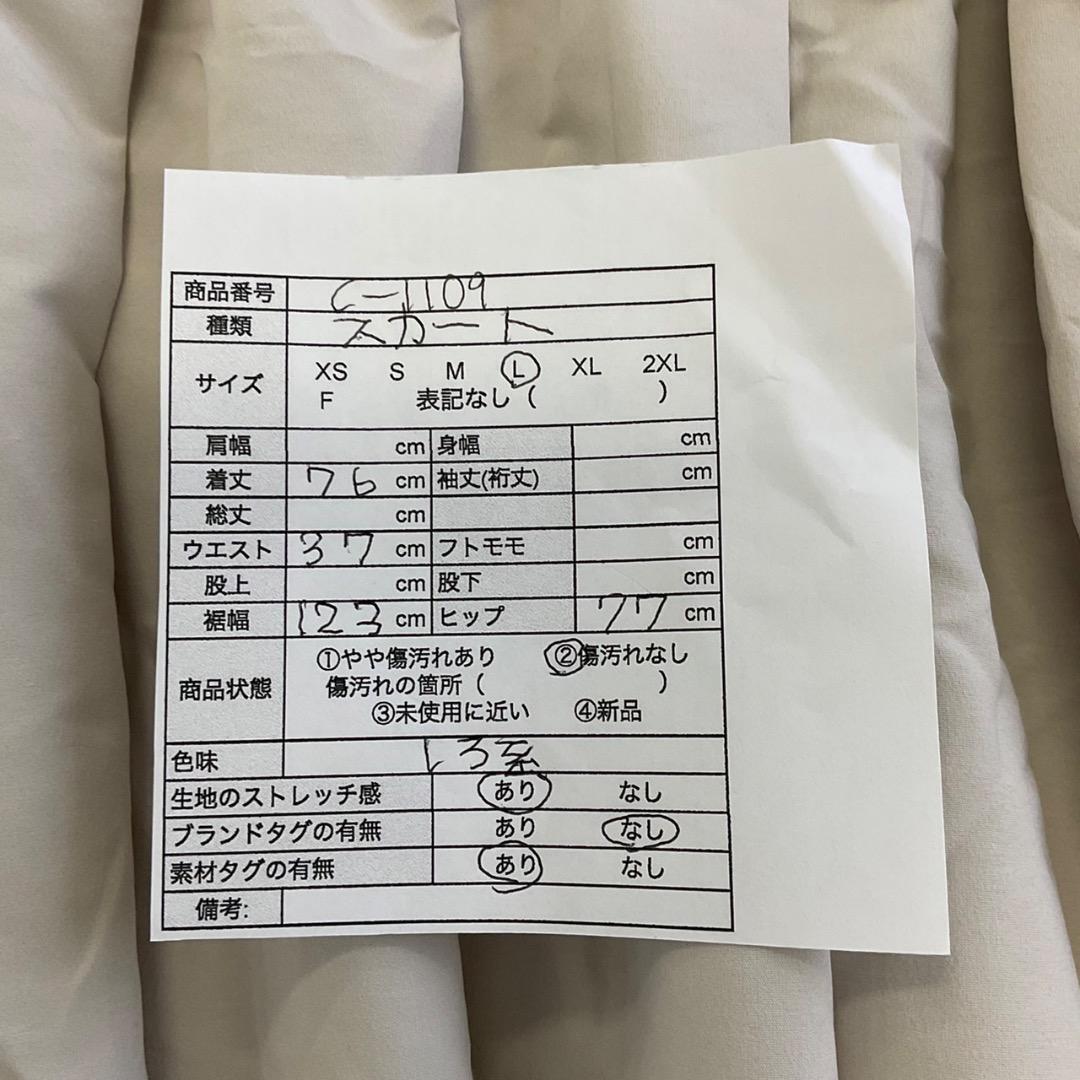 商品番号 C-1109
種類 スカート
サイズ XS S M L XL 2XL
F 表記なし ( )
肩幅 cm 身幅 cm
着丈 76 cm 袖丈(裄丈) cm
総丈 cm
ウエスト 37 cm フトモモ cm
股上 cm 股下 cm
裾幅 123 cm ヒップ 77 cm
商品状態 ①やや傷汚れあり ②傷汚れなし
傷汚れの箇所 ( )
③未使用に近い ④新品
色味 しろ系
生地のストレッチ感 あり なし
ブランドタグの有無 あり なし
素材タグの有無 あり なし
備考: